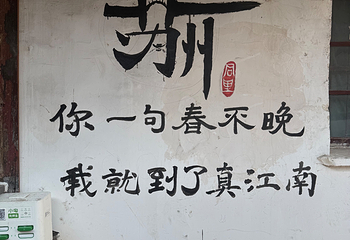 苏州
同里
你一句春不晚
我就到了真江南